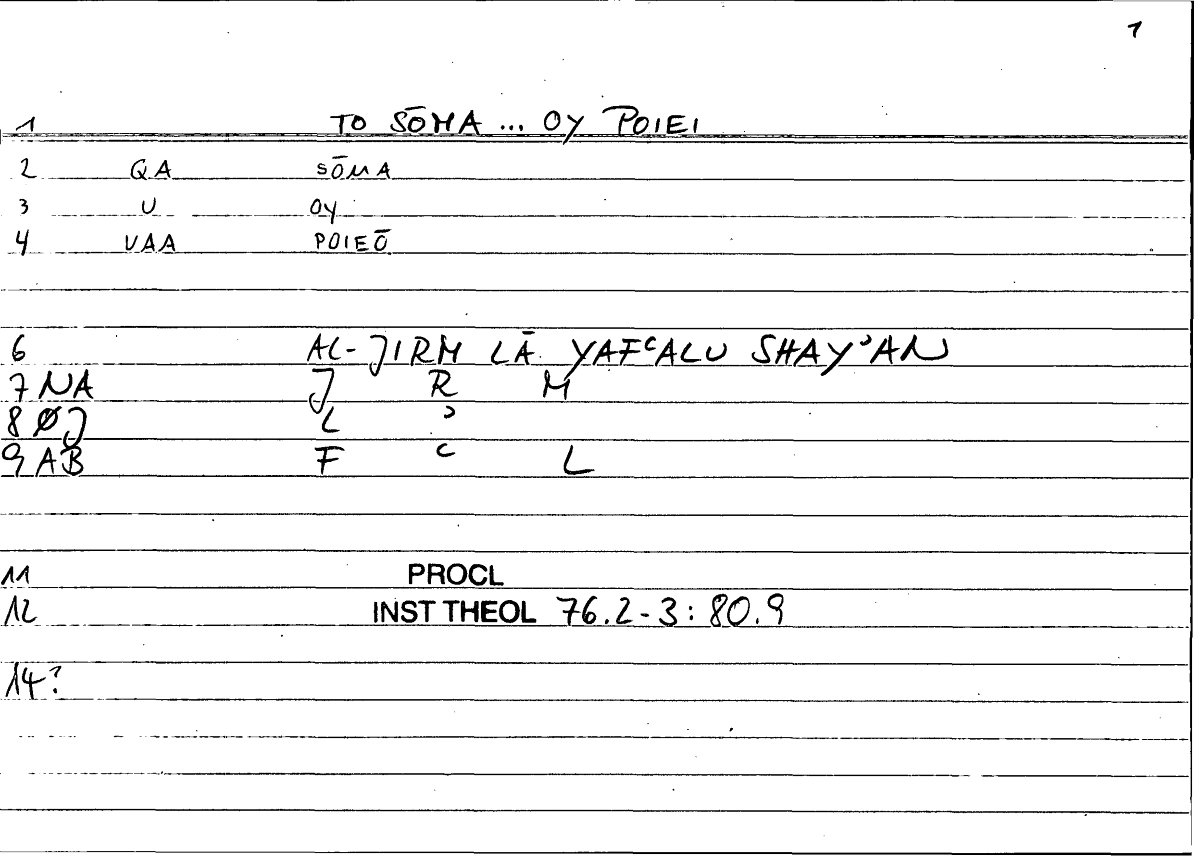 1
1 TO SŌMA ... OY POIEI
2 QA SŌMA
3 U OY
4 VAA POIEŌ
6 AL-JIRM LĀ YAFʿALU SHAYʾAN
7 NA J R M
8 ØJ L ʾ
9 AB F ʿ L
11 PROCL
12 INST THEOL 76.2-3: 80.9
14?